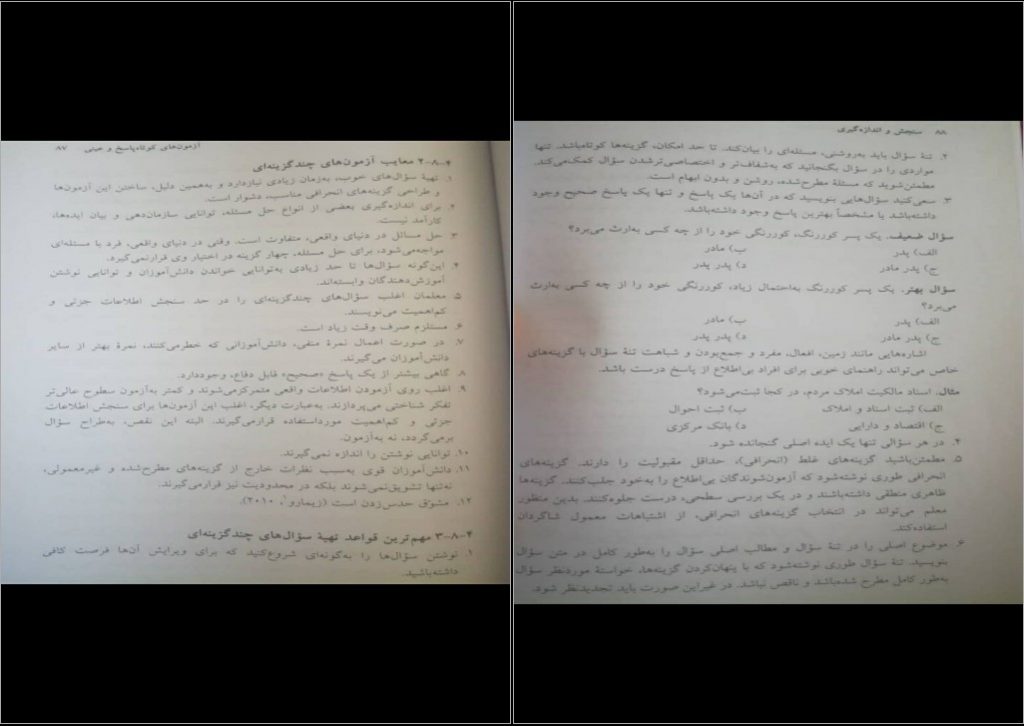 آزمون‌های کوتاه‌پاسخ و عینی ۸۷
۴-۸-۲ معایب آزمون‌های چندگزینه‌ای
۱. تهیهٔ سؤال‌های خوب، به‌زمان زیادی نیازدارد و به‌همین دلیل، ساختن این آزمون‌ها
و طراحی گزینه‌های انحرافی مناسب، دشوار است.
۲. برای اندازه‌گیری بعضی از انواع حل مسئله، توانایی سازمان‌دهی و بیان ایده‌ها،
کارآمد نیست.
۳. حل مسائل در دنیای واقعی، متفاوت است. وقتی در دنیای واقعی، فرد با مسئله‌ای
مواجه‌می‌شود، برای حل مسئله، چهار گزینه در اختیار وی قرارنمی‌گیرد.
۴. این‌گونه سؤال‌ها تا حد زیادی به‌توانایی خواندن دانش‌آموزان و توانایی نوشتن
آموزش‌دهندگان وابسته‌اند.
۵. معلمان اغلب سؤال‌های چندگزینه‌ای را در حد سنجش اطلاعات جزئی و
کم‌اهمیت می‌نویسند.
۶. مستلزم صرف وقت زیاد است.
۷. در صورت اعمال نمرهٔ منفی، دانش‌آموزانی که خطرمی‌کنند، نمرهٔ بهتر از سایر
دانش‌آموزان می‌گیرند.
۸. گاهی بیشتر از یک پاسخ «صحیح» قابل دفاع، وجوددارد.
۹. اغلب روی آزمودن اطلاعات واقعی متمرکزمی‌شوند و کمتر به‌آزمون سطوح عالی‌تر
تفکر شناختی می‌پردازند. به‌عبارت دیگر، اغلب این آزمون‌ها برای سنجش اطلاعات
جزئی و کم‌اهمیت مورداستفاده قرارمی‌گیرند. البته این نقص، به‌طراح سؤال
برمی‌گردد، نه به‌آزمون.
۱۰. توانایی نوشتن را اندازه نمی‌گیرند.
۱۱. دانش‌آموزان قوی به‌سبب نظرات خارج از گزینه‌های مطرح‌شده و غیرمعمولی،
نه‌تنها تشویق‌نمی‌شوند بلکه در محدودیت نیز قرارمی‌گیرند.
۱۲. مشوّق حدس‌زدن است (زیمارو۱، ۲۰۱۰).
۴-۸-۳ مهم‌ترین قواعد تهیهٔ سؤال‌های چندگزینه‌ای
۱. نوشتن سؤال‌ها را به‌گونه‌ای شروع‌کنید که برای ویرایش آن‌ها فرصت کافی
داشته‌باشید.
۸۸ سنجش و اندازه‌گیری
۲. تنهٔ سؤال باید به‌روشنی، مسئله‌ای را بیان‌کند. تا حد امکان، گزینه‌ها کوتاه‌باشد. تنها
مواردی را در سؤال بگنجانید که به‌شفاف‌تر و اختصاصی‌ترشدن سؤال کمک‌می‌کند.
مطمئن‌شوید که مسئلهٔ مطرح‌شده، روشن و بدون ابهام است.
۳. سعی‌کنید سؤال‌هایی بنویسید که در آن‌ها یک پاسخ و تنها یک پاسخ صحیح وجود
داشته‌باشد یا مشخصاً بهترین پاسخ وجود داشته‌باشد.
سؤال ضعیف. یک پسر کوررنگ، کوررنگی خود را از چه کسی به‌ارث می‌برد؟
الف) پدر ب) مادر
ج) پدر مادر د) پدر پدر
سؤال بهتر. یک پسر کوررنگ به‌احتمال زیاد، کوررنگی خود را از چه کسی به‌ارث
می‌برد؟
الف) پدر ب) مادر
ج) پدر مادر د) پدر پدر
اشاره‌هایی مانند زمین، افعال، مفرد و جمع‌بودن و شباهت تنهٔ سؤال با گزینه‌های
خاص می‌تواند راهنمای خوبی برای افراد بی‌اطلاع از پاسخ درست باشد.
مثال. اسناد مالکیت املاک مردم، در کجا ثبت‌می‌شود؟
الف) ثبت اسناد و املاک ب) ثبت احوال
ج) اقتصاد و دارایی د) بانک مرکزی
۴. در هر سؤالی تنها یک ایده اصلی گنجانده شود.
۵. مطمئن‌باشید گزینه‌های غلط (انحرافی)، حداقل مقبولیت را دارند. گزینه‌های
انحرافی طوری نوشته‌شود که آزمون‌شوندگان بی‌اطلاع را به‌خود جلب‌کنند. گزینه‌ها
ظاهری منطقی داشته‌باشند و در یک بررسی سطحی، درست جلوه‌کنند. بدین منظور
معلم می‌تواند در انتخاب گزینه‌های انحرافی، از اشتباهات معمول شاگردان
استفاده‌کند.
۶. موضوع اصلی را در تنهٔ سؤال و مطالب اصلی سؤال را به‌طور کامل در متن سؤال
بنویسید. تنهٔ سؤال طوری نوشته‌شود که با پنهان‌کردن گزینه‌ها، خواستهٔ موردنظر سؤال
به‌طور کامل مطرح شده‌باشد و ناقص نباشد. در غیراین صورت باید تجدیدنظر شود.